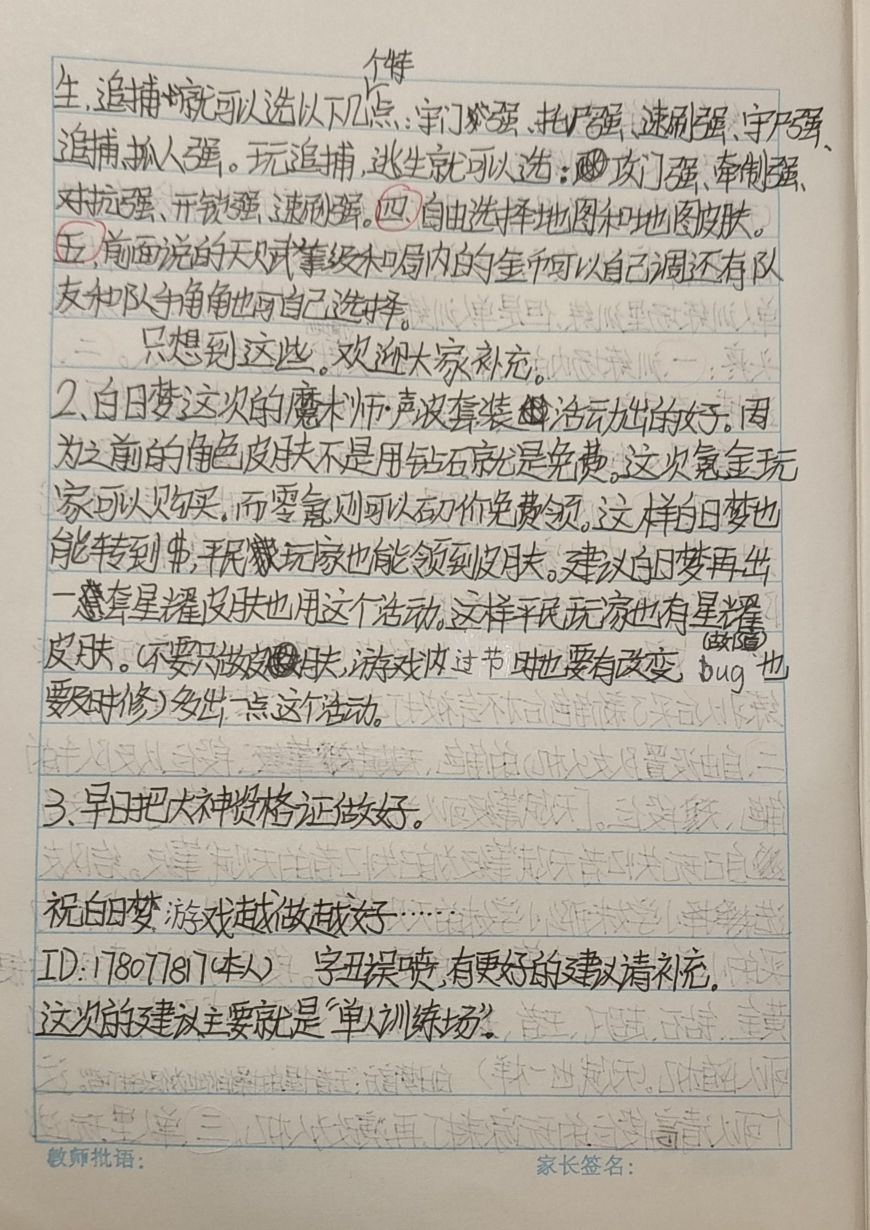 生,追捕就可以选以下几个特点:守门强、托尸强、速刷强、守尸强、
追捕、抓人强。玩追捕,逃生就可以选:攻门强、牵制强、
对抗强、开锁强、速刷强。四、自由选择地图和地图皮肤。
五、前面说的天赋等级和局内的金币可以自己调还有队
友和队手角角也可自己选择。
只想到这些。欢迎大家补充。
2、白日梦这次的魔术师·声波套装活动出的好。因
为之前的角色皮肤不是用钻石就是免费。这次氪金玩
家可以购买。而零氪则可以砍价免费领。这样白日梦也
能转到$,平民玩家也能领到皮肤。建议白日梦再出
一套星耀皮肤也用这个活动。这样平民玩家也有星耀
皮肤。(不要只做皮肤,游戏内过节时也要有改变,bug(故障)也
要及时修)多出一点这个活动。
3、早日把大神资格证做好。
祝白日梦游戏越做越好……
ID:178077817(本人) 字丑误喷,有更好的建议请补充。
这次的建议主要就是“单人训练场”。
教师批语: 家长签名: